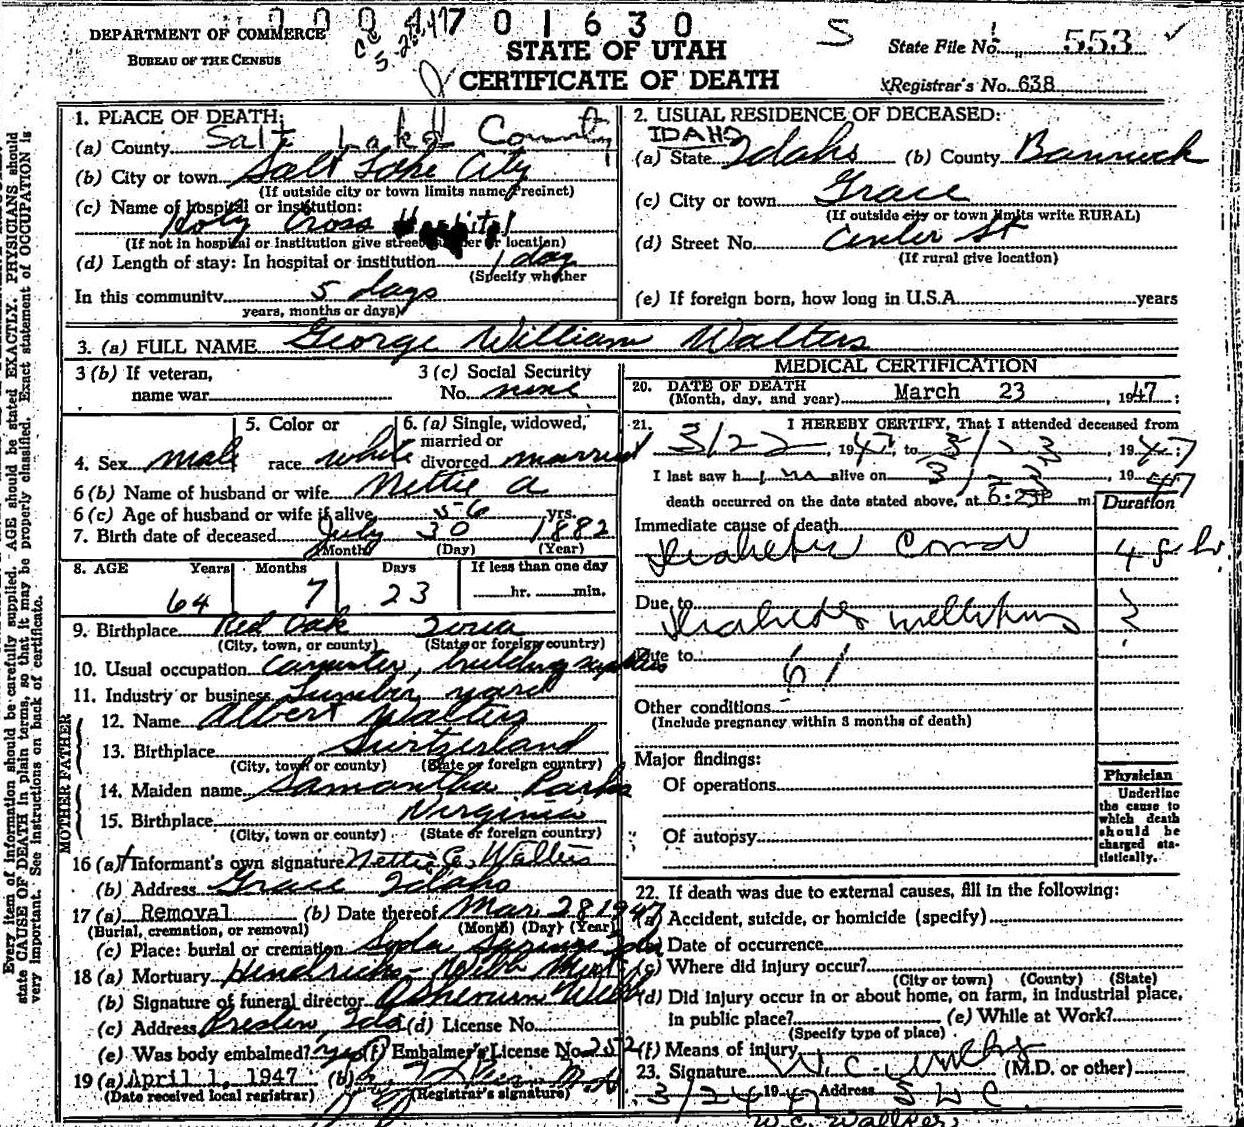 0 0 0 7 0 1 6 3 0
DEPARTMENT OF COMMERCE
BUREAU OF THE CENSUS
STATE OF UTAH
CERTIFICATE OF DEATH
S
State File No. 553
Registrar's No. 638
Every item of information should be carefully supplied. AGE should be stated EXACTLY. PHYSICIANS should
state CAUSE OF DEATH in plain terms, so that it may be properly classified. Exact statement of OCCUPATION is
very important. See instructions on back of certificate.
1. PLACE OF DEATH:
(a) County Salt Lake County
(b) City or town Salt Lake City
(If outside city or town limits name Precinct)
(c) Name of hospital or institution:
Holy Cross Hospital
(If not in hospital or institution give street number or location)
(d) Length of stay: In hospital or institution 1 day
(Specify whether
In this community 5 days
years, months or days)
2. USUAL RESIDENCE OF DECEASED:
IDAHO
(a) State Idaho (b) County Bannock
(c) City or town Grace
(If outside city or town limits write RURAL)
(d) Street No. Center St
(If rural give location)
(e) If foreign born, how long in U.S.A. years
3. (a) FULL NAME George William Walters
3 (b) If veteran,
name war
3 (c) Social Security
No. none
4. Sex male
5. Color or
race white
6. (a) Single, widowed,
married or
divorced married
6 (b) Name of husband or wife Nettie A
6 (c) Age of husband or wife if alive 56 yrs.
7. Birth date of deceased July 30 1882
(Month) (Day) (Year)
8. AGE Years Months Days If less than one day
64 7 23 hr. min.
9. Birthplace Red Oak Iowa
(City, town, or county) (State or foreign country)
10. Usual occupation Carpenter, building supplies
11. Industry or business Lumber yard
FATHER
12. Name Albert Walters
13. Birthplace Switzerland
(City, town or county) (State or foreign country)
MOTHER
14. Maiden name Samantha Parks
15. Birthplace Virginia
(City, town or county) (State or foreign country)
16 (a) Informant's own signature Nettie Walters
(b) Address Grace Idaho
17 (a) Removal (b) Date thereof Mar. 28 1947
(Burial, cremation, or removal) (Month) (Day) (Year)
(c) Place: burial or cremation Soda Springs Ida
18 (a) Mortuary Hendricks-
(b) Signature of funeral director
(c) Address Preston, Ida (d) License No.
(e) Was body embalmed? yes (f) Embalmer's License No. 252
19 (a) April 1, 1947 (b)
(Date received local registrar) (Registrar's signature)
MEDICAL CERTIFICATION
20. DATE OF DEATH
(Month, day, and year) March 23, 1947;
21. I HEREBY CERTIFY, That I attended deceased from
3/22, 1947, to 3/23, 1947;
I last saw him alive on 3/23, 1947
death occurred on the date stated above, at 6:23P m.
Duration
Immediate cause of death
Diabetic Coma 48 hr.
Due to
Diabetes mellitus ?
Due to 61
Other conditions
(Include pregnancy within 3 months of death)
Major findings:
Of operations
Of autopsy
Physician
Underline
the cause to
which death
should be
charged sta-
tistically.
22. If death was due to external causes, fill in the following:
(a) Accident, suicide, or homicide (specify)
(b) Date of occurrence
(c) Where did injury occur?
(City or town) (County) (State)
(d) Did injury occur in or about home, on farm, in industrial place,
in public place? (e) While at Work?
(Specify type of place)
(f) Means of injury
23. Signature W. C. (M.D. or other)
3/24 1947 Address S L C
W.C. Walker